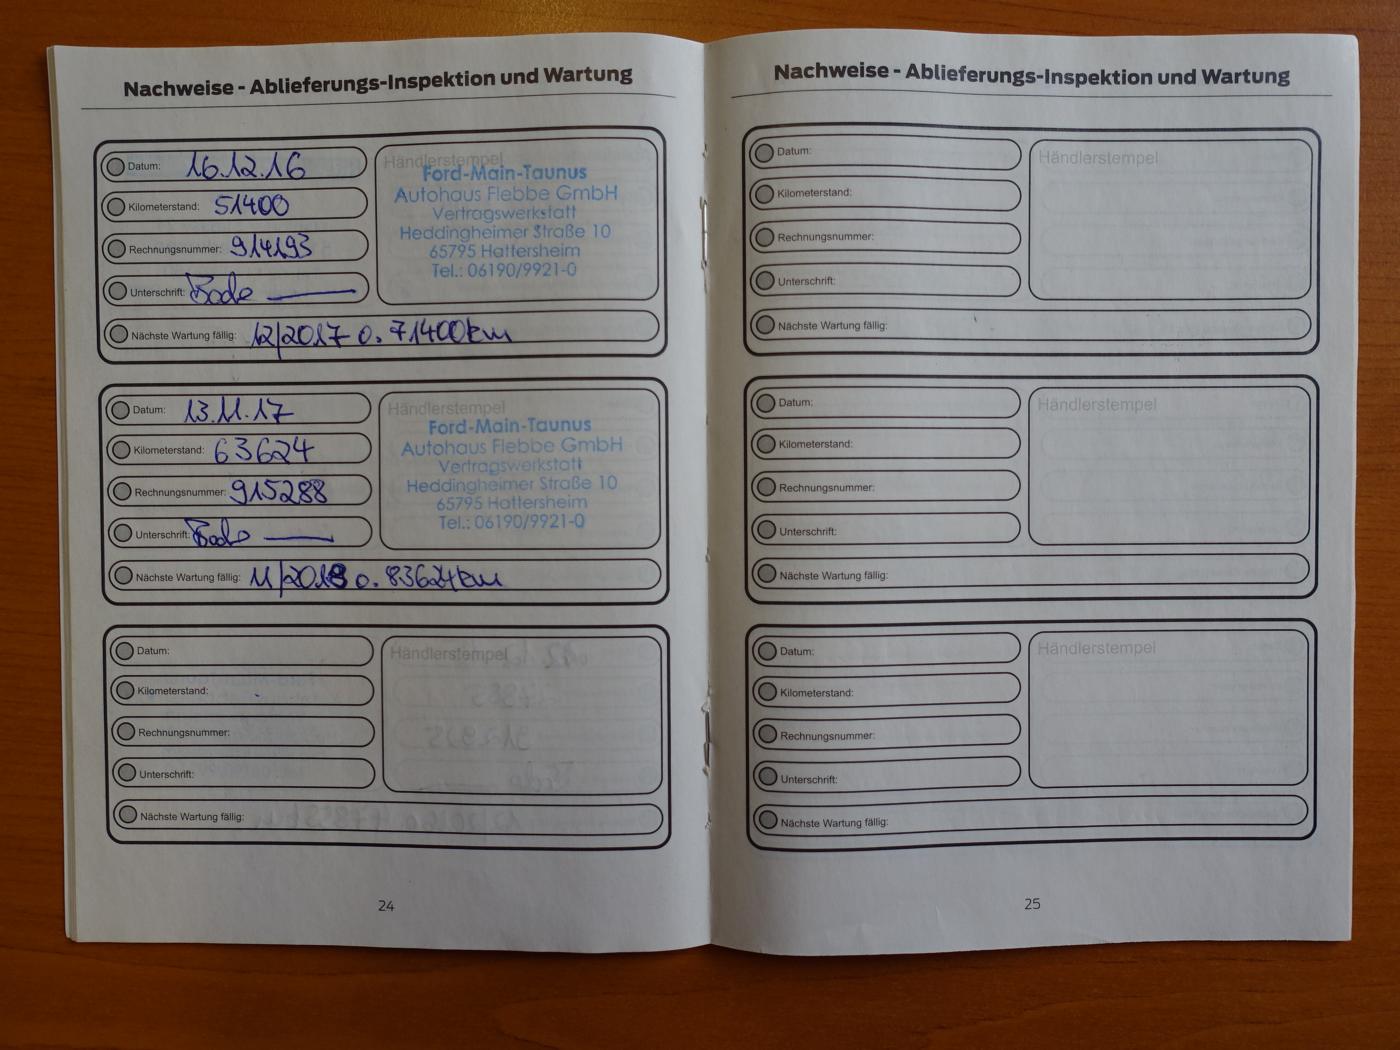 Nachweise - Ablieferungs-Inspektion und Wartung
Datum: 16.12.16
Kilometerstand: 51400
Rechnungsnummer: 914193
Unterschrift: Bode
Nächste Wartung fällig: 12/2017 o. 71400km
Händlerstempel
Ford-Main-Taunus
Autohaus Flebbe GmbH
Vertragswerkstatt
Heddingheimer Straße 10
65795 Hattersheim
Tel.: 06190/9921-0
Datum: 13.11.17
Kilometerstand: 63624
Rechnungsnummer: 915288
Unterschrift: Bode
Nächste Wartung fällig: 11/2018 o. 83624km
Händlerstempel
Ford-Main-Taunus
Autohaus Flebbe GmbH
Vertragswerkstatt
Heddingheimer Straße 10
65795 Hattersheim
Tel.: 06190/9921-0
Datum:
Kilometerstand:
Rechnungsnummer:
Unterschrift:
Nächste Wartung fällig:
Händlerstempel
24
Nachweise - Ablieferungs-Inspektion und Wartung
Datum:
Kilometerstand:
Rechnungsnummer:
Unterschrift:
Nächste Wartung fällig:
Händlerstempel
Datum:
Kilometerstand:
Rechnungsnummer:
Unterschrift:
Nächste Wartung fällig:
Händlerstempel
Datum:
Kilometerstand:
Rechnungsnummer:
Unterschrift:
Nächste Wartung fällig:
Händlerstempel
25